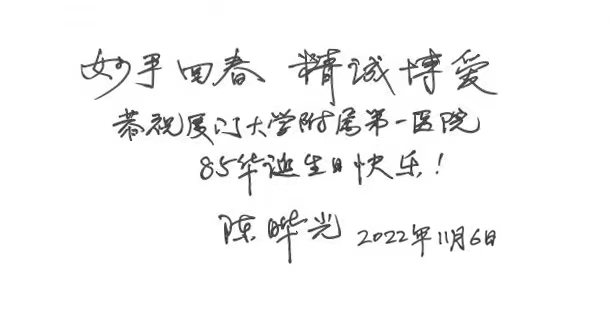 妙手回春 精诚博爱
恭祝厦门大学附属第一医院
85华诞生日快乐!
陈晔光 2022年11月6日